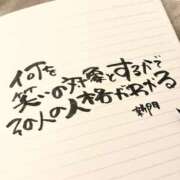 何を
笑いの対象とするかで
その人の人格がわかる